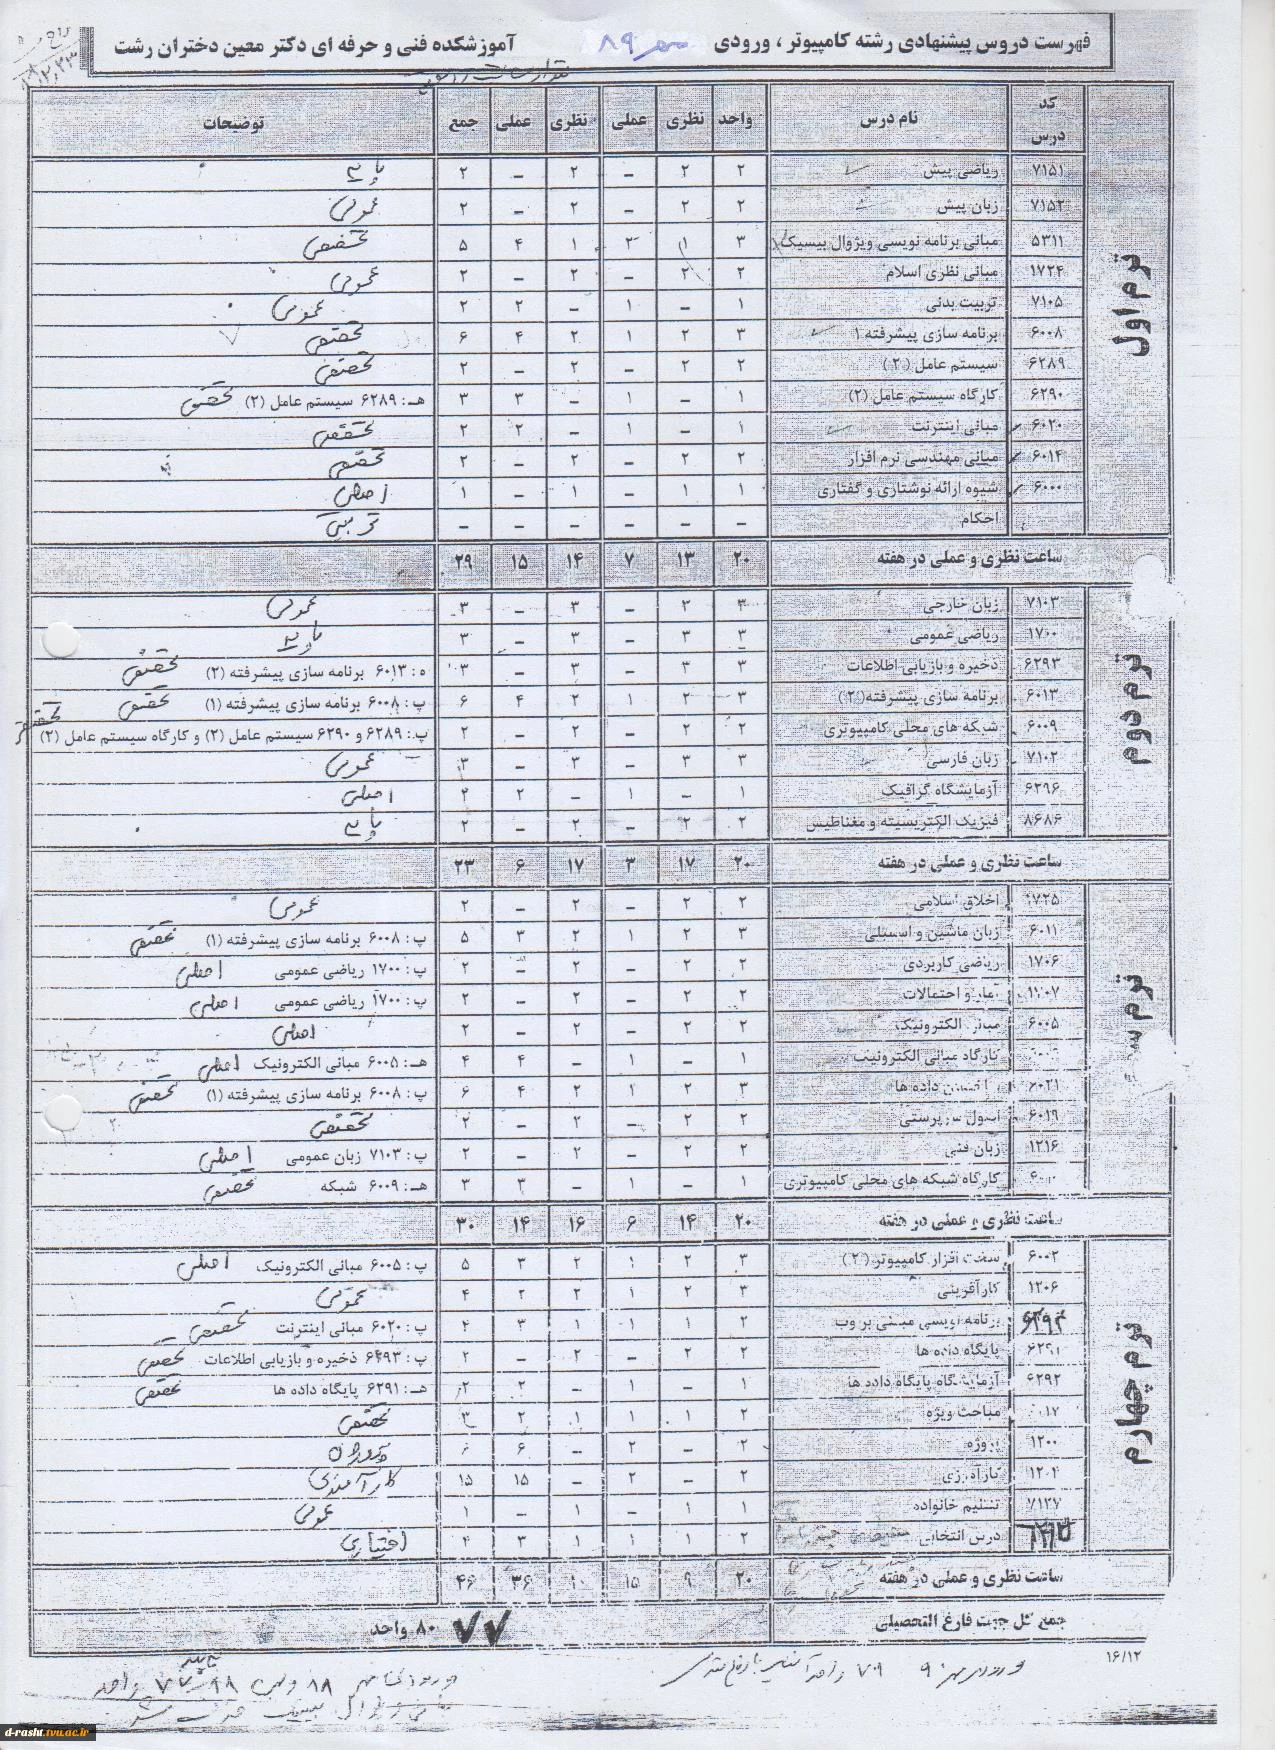 فهرست دروس پیشنهادی رشته کامپیوتر ، ورودی مهر ۸۹ آموزشکده فنی و حرفه ای دکتر معین دختران رشت
کد درس نام درس واحد نظری عملی نظری عملی جمع توضیحات
ترم اول
۷۱۵۱ ریاضی پیش ۲ ۲ – ۲ – ۲ پایه
۷۱۵۲ زبان پیش ۲ ۲ – ۲ – ۲ عمومی
۵۳۱۱ مبانی برنامه نویسی ویژوال بیسیک ۳ ۱ ۲ ۱ ۴ ۵ تخصصی
۱۷۲۴ مبانی نظری اسلام ۲ ۲ – ۲ – ۲ عمومی
۷۱۰۵ تربیت بدنی ۱ – ۱ – ۲ ۲ عمومی
۶۰۰۸ برنامه سازی پیشرفته ۱ ۳ ۲ ۱ ۲ ۴ ۶ تخصصی
۶۲۸۹ سیستم عامل (۲) ۲ ۲ – ۲ – ۲ تخصصی
۶۲۹۰ کارگاه سیستم عامل (۲) ۱ – ۱ – ۳ ۳ هـ: ۶۲۸۹ سیستم عامل (۲) تخصصی
۶۰۲۰ مبانی اینترنت ۱ – ۱ – ۲ ۲ تخصصی
۶۰۱۴ مبانی مهندسی نرم افزار ۲ ۲ – ۲ – ۲ تخصصی
۶۰۰۰ شیوه ارائه نوشتاری و گفتاری ۱ ۱ – ۱ – ۱ اصلی
احکام – – – – – –
ساعت نظری و عملی در هفته ۲۰ ۱۳ ۷ ۱۴ ۱۵ ۲۹
ترم دوم
۷۱۰۳ زبان خارجی ۳ ۳ – ۳ – ۳ عمومی
۱۷۰۰ ریاضی عمومی ۳ ۳ – ۳ – ۳ پایه
۶۲۹۳ ذخیره و بازیابی اطلاعات ۳ ۳ – ۳ – ۳ ه: ۶۰۱۳ برنامه سازی پیشرفته (۲) تخصصی
۶۰۱۳ برنامه سازی پیشرفته(۲) ۳ ۲ ۱ ۲ ۴ ۶ پ: ۶۰۰۸ برنامه سازی پیشرفته (۱) تخصصی
۶۰۰۹ شبکه های محلی کامپیوتری ۲ ۲ – ۲ – ۲ پ: ۶۲۸۹ و ۶۲۹۰ سیستم عامل (۲) و کارگاه سیستم عامل (۲) تخصصی
۷۱۰۲ زبان فارسی ۳ ۳ – ۳ – ۳ عمومی
۶۲۹۶ آزمایشگاه گرافیک ۱ – ۱ – ۲ ۲ اصلی
۸۶۸۶ فیزیک الکتریسیته و مغناطیس ۲ ۲ – ۲ – ۲ پایه
ساعت نظری و عملی در هفته ۲۰ ۱۷ ۳ ۱۷ ۶ ۲۳
ترم
۱۷۲۵ اخلاق اسلامی ۲ ۲ – ۲ – ۲ عمومی
۶۰۱۱ زبان ماشین و اسمبلی ۳ ۲ ۱ ۲ ۳ ۵ پ: ۶۰۰۸ برنامه سازی پیشرفته (۱) تخصصی
۱۷۰۶ ریاضی کاربردی ۲ ۲ – ۲ – ۲ پ: ۱۷۰۰ ریاضی عمومی اصلی
آمار و احتمالات ۲ ۲ – ۲ – ۲ پ: ۱۷۰۰ ریاضی عمومی اصلی
۶۰۰۵ مبانی الکترونیک ۲ ۲ – ۲ – ۲ اصلی
کارگاه مبانی الکترونیک ۱ – ۱ – ۴ ۴ هـ: ۶۰۰۵ مبانی الکترونیک اصلی
۶۰۲۱ داده ها ۳ ۲ ۱ ۲ ۴ ۶ پ: ۶۰۰۸ برنامه سازی پیشرفته (۱) تخصصی
۶۰۱۹ اصول سرپرستی ۲ ۲ – ۲ – ۲ تخصصی
۱۲۱۶ زبان فنی ۲ ۲ – ۲ – ۲ پ: ۷۱۰۳ زبان عمومی اصلی
کارگاه شبکه های محلی کامپیوتری ۱ – ۱ – ۳ ۳ هـ: ۶۰۰۹ شبکه تخصصی
ساعت نظری و عملی در هفته ۲۰ ۱۴ ۶ ۱۶ ۱۴ ۳۰
ترم چهارم
۶۰۰۲ سخت افزار کامپیوتر (۲) ۳ ۲ ۱ ۲ ۳ ۵ پ: ۶۰۰۵ مبانی الکترونیک اصلی
۱۲۰۶ کارآفرینی ۳ ۲ ۱ ۲ ۲ ۴ عمومی
۶۲۹۴ برنامه نویسی مبتنی بر وب ۲ ۱ ۱ ۱ ۳ ۴ پ: ۶۰۲۰ مبانی اینترنت تخصصی
۶۲۹۱ پایگاه داده ها ۲ ۲ – ۲ – ۲ پ: ۶۲۹۳ ذخیره و بازیابی اطلاعات تخصصی
۶۲۹۲ آزمایشگاه پایگاه داده ها ۱ – ۱ – ۲ ۲ هـ: ۶۲۹۱ پایگاه داده ها تخصصی
مباحث ویژه ۲ ۱ ۱ ۱ ۲ ۳ تخصصی
۱۲۰۰ پروژه ۲ – ۲ – ۶
کارآموزی ۲ – ۲ – ۱۵ ۱۵
۷۱۲۷ تنظیم خانواده ۱ ۱ – ۱ – ۱ عمومی
درس انتخابی ۲ ۱ ۱ ۱ ۳ ۴ اختیاری
ساعت نظری و عملی در هفته ۲۰ ۹ ۱۵ ۱۰ ۳۶ ۴۶
جمع کل جهت فارغ التحصیلی ۸۰ واحد ۷۷
۱۶/۱۲
d-rasht.tvu.ac.ir